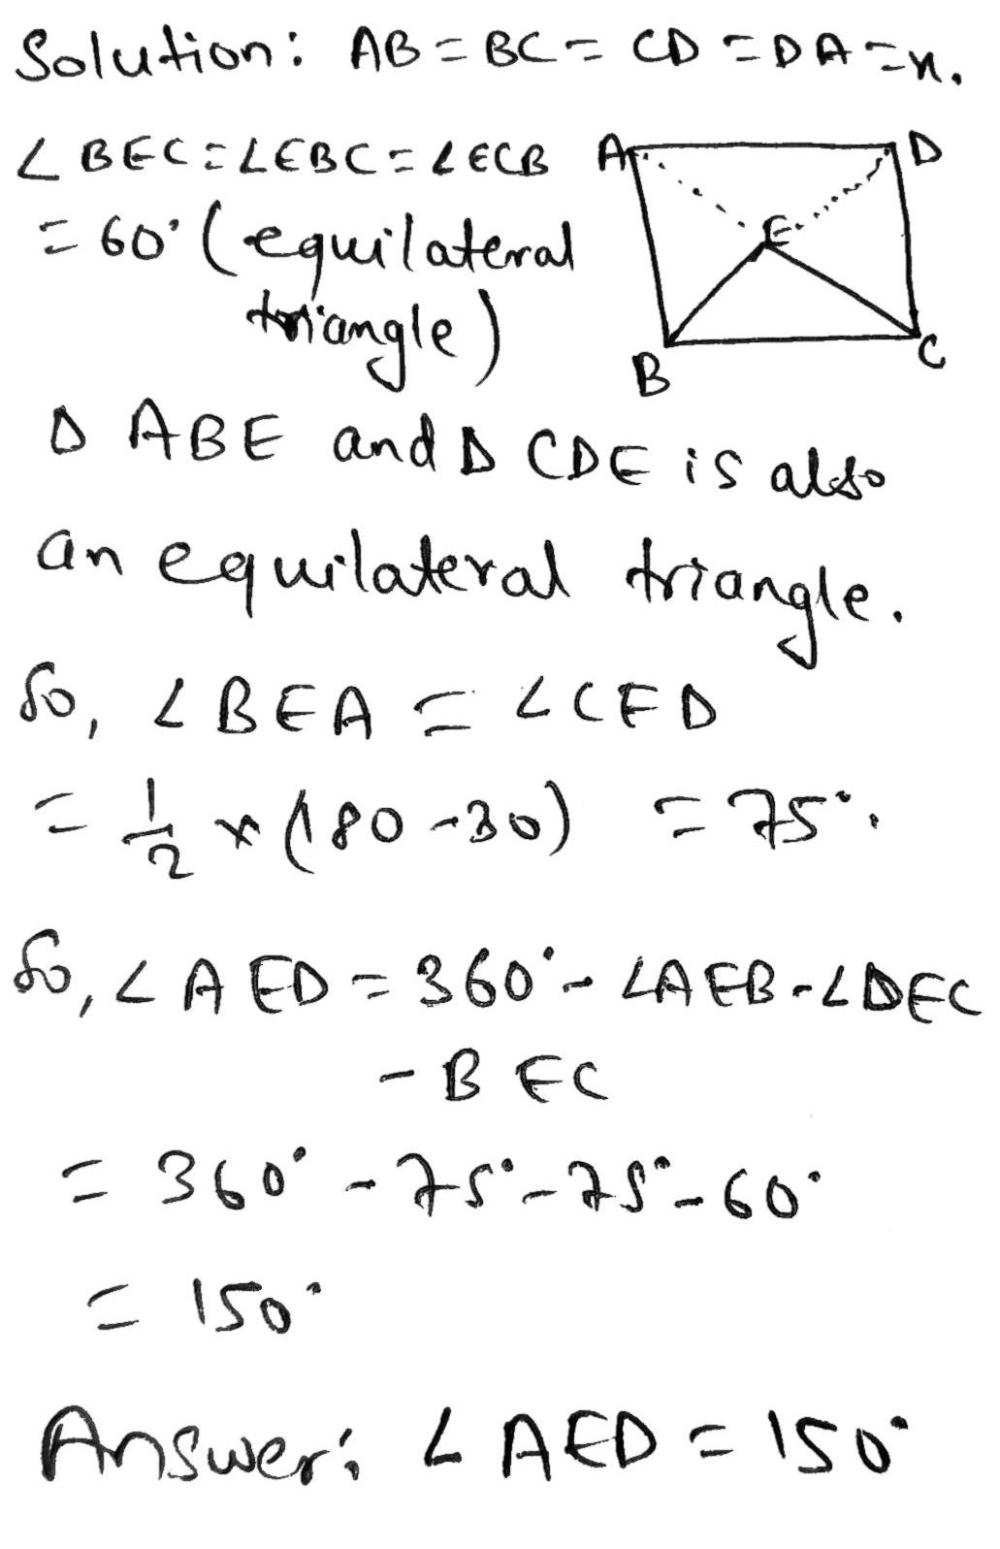 Solution: AB = BC = CD = DA = x.
∠ BEC = ∠EBC = ∠ECB
= 60° (equilateral
triangle)
A
D
E
B
C
Δ ABE and Δ CDE is also
an equilateral triangle.
So, ∠ BEA = ∠CED
= 1/2 × (180 - 30) = 75°.
So, ∠ AED = 360° - ∠AEB - ∠DEC
- BEC
= 360° - 75° - 75° - 60°
= 150°
Answer: ∠ AED = 150°